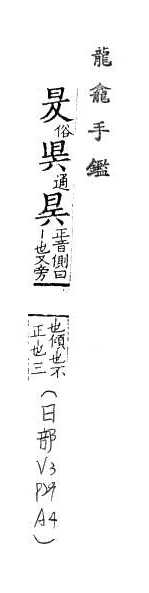 龍龕手鑑
俗通正音側日
丨也又旁
也傾也不
正也三
(日部V3P27A4)